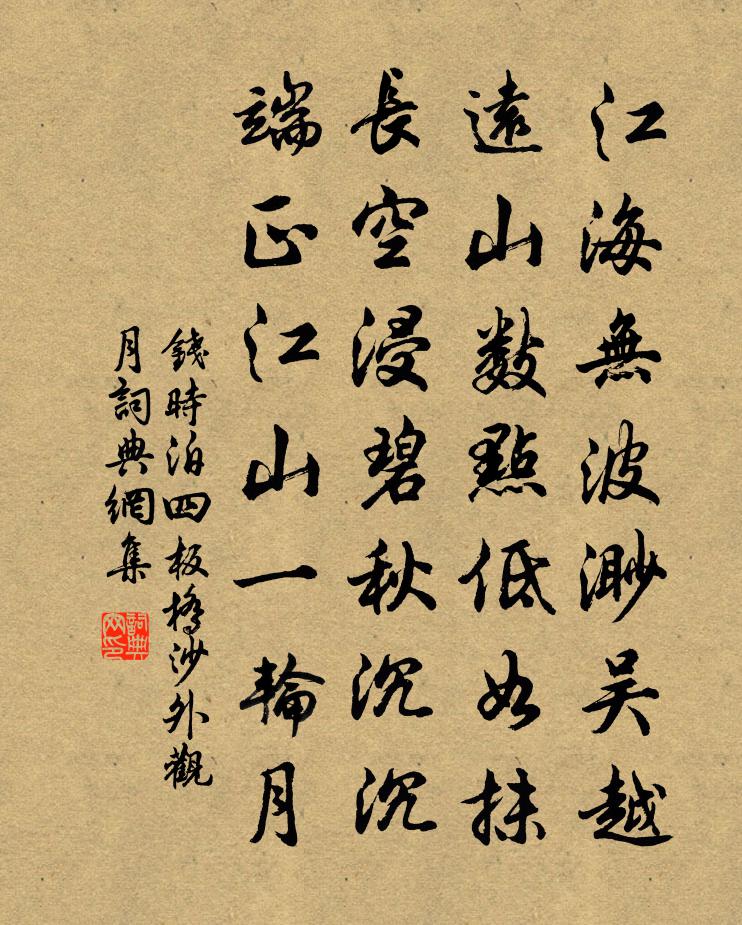 江海無波渺吴越
遠山數點低如抹
長空浸碧秋沉沉
端正江山一輪月
錢時泊四板橋沙外觀
月詞典網集
詞典網印